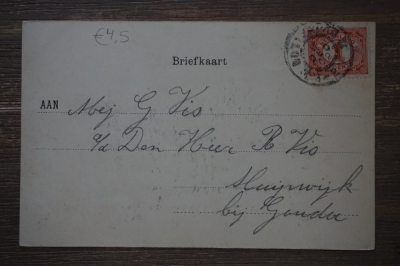 €4,5
Briefkaart
AAN Mej G Vis
p/a Den Heer R Vis
Sluipwijk
bij Gouda